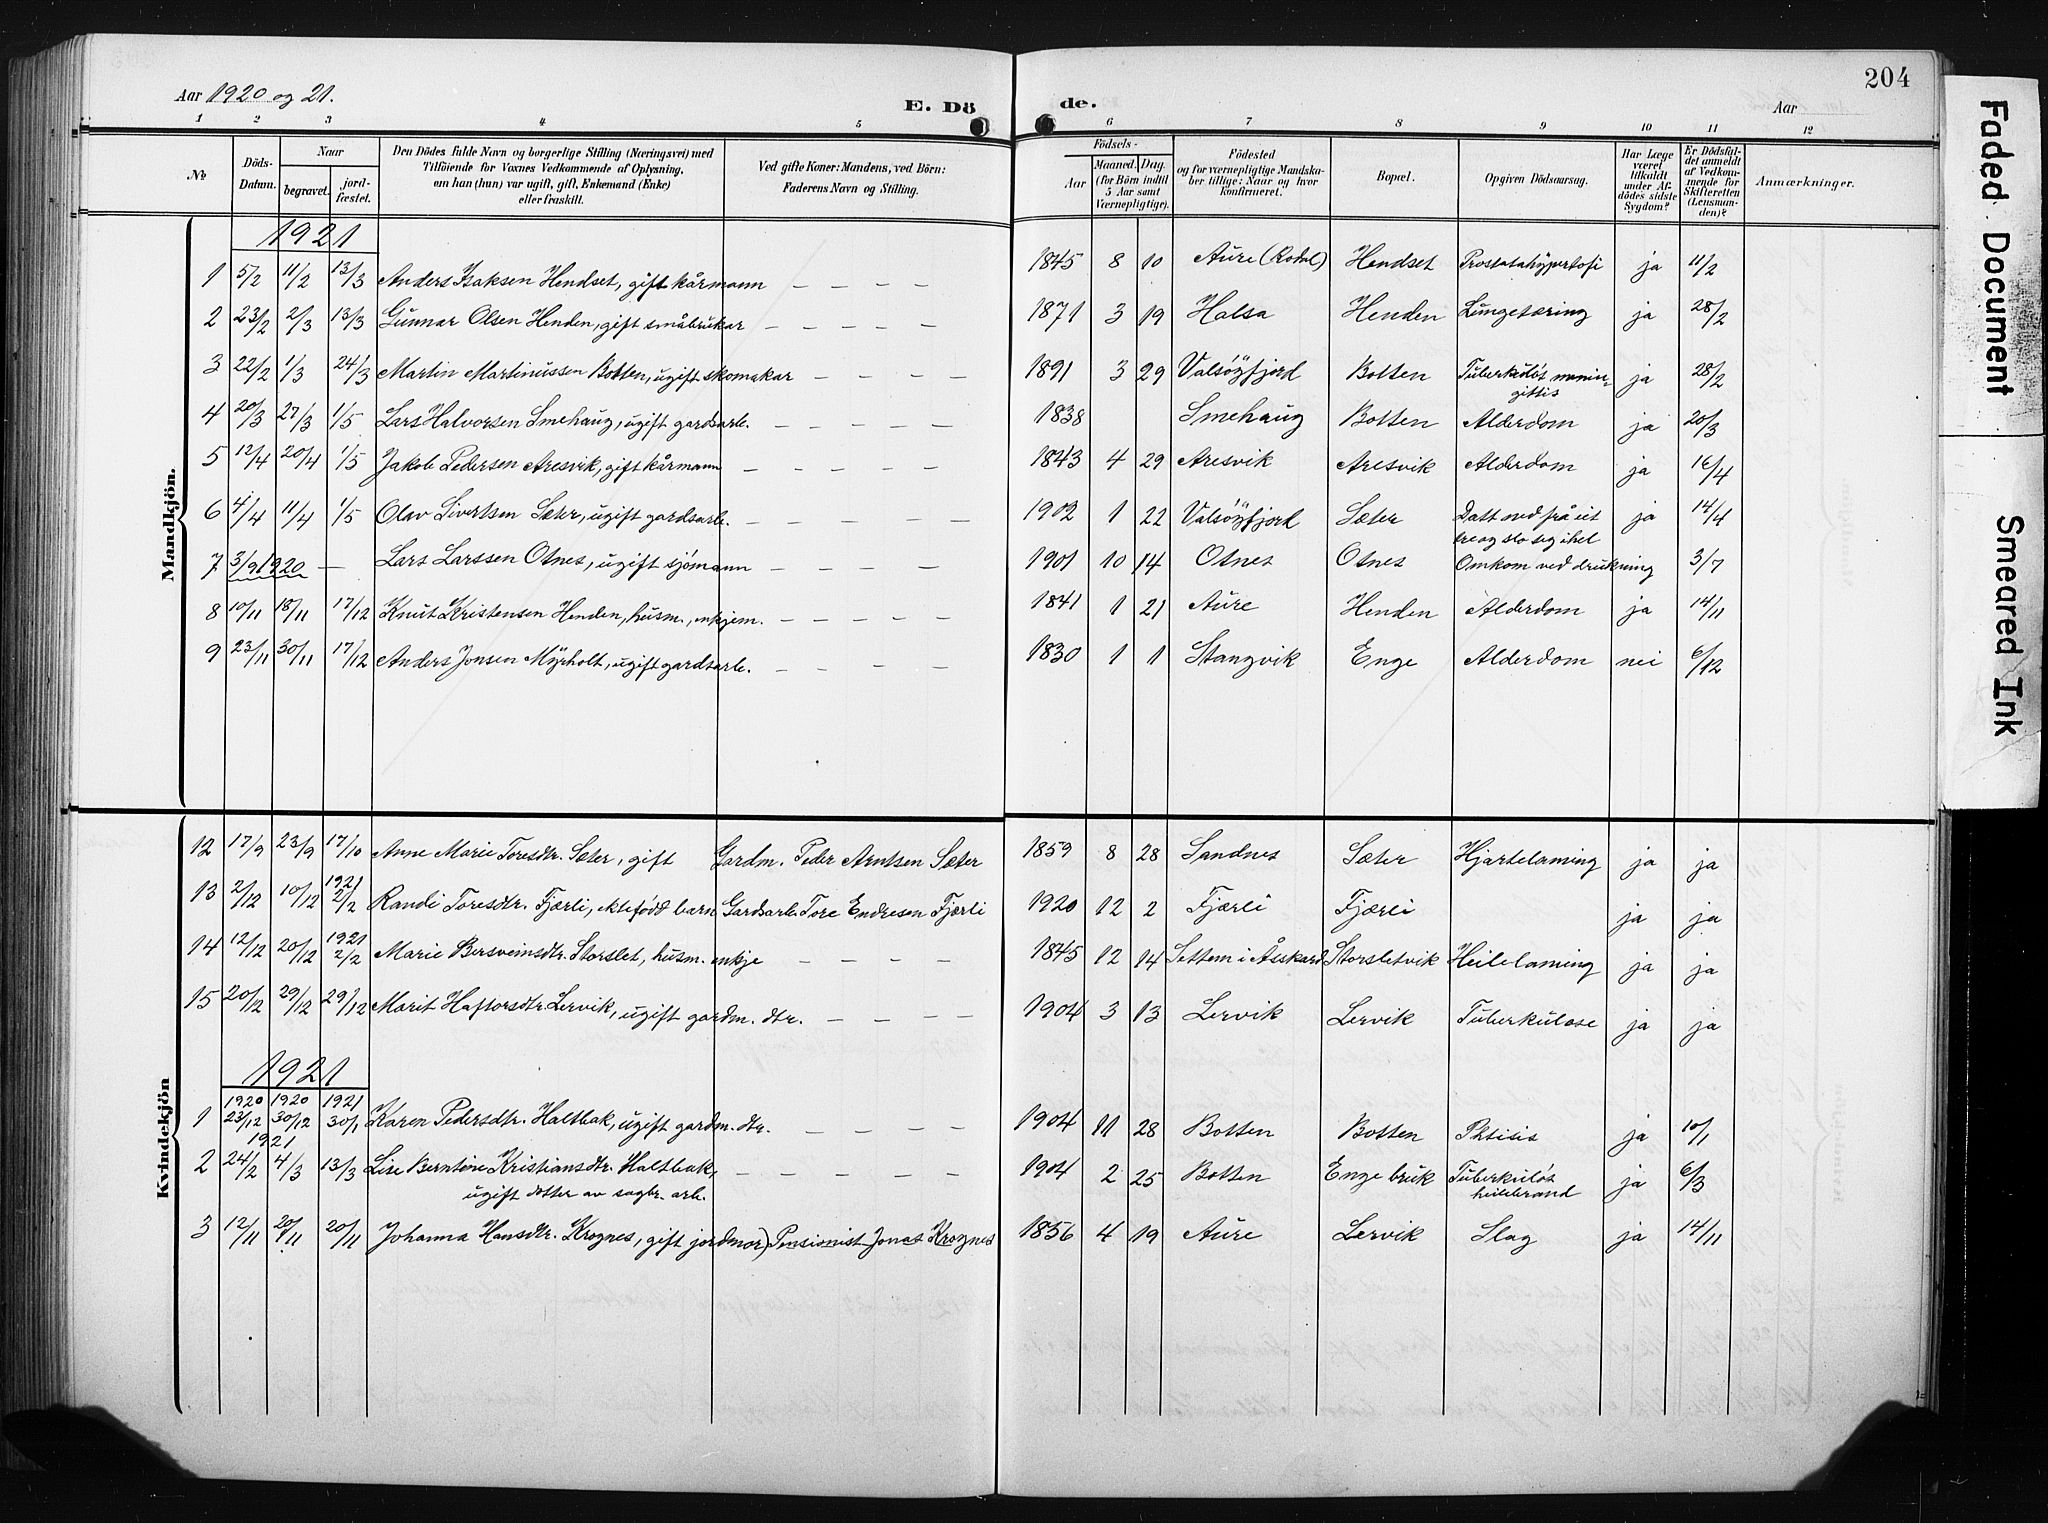 204
Aar 1920 og 21.
E. Dö de.
Aar
1 2 3 4 5 6 7 8 9 10 11 12
No
Döds-Datum.
Naar
begravet.
jordfæstet.
Den Dödes fulde Navn og borgerlige Stilling (Næringsvei) med Tilföiende for Voxnes Vedkommende af Oplysning, om han (hun) var ugift, gift, Enkemand (Enke) eller fraskilt.
Ved gifte Koner: Mandens, ved Börn: Faderens Navn og Stilling.
Födsels-
Aar
Maaned. Dag.
(for Börn indtil 5 Aar samt Værnepligtige).
Födested og for værnepligtige Mandskaber tillige: Naar og hvor konfirmeret.
Bopæl.
Opgiven Dödsaarsag.
Har Læge været tilkaldt under Afdödes sidste Sygdom?
Er Dödsfaldet anmeldt af Vedkommende for Skifteretten (Lensmanden)?
Anmærkninger.
Mandkjön.
1921
1 5/2 11/2 13/3 Anders Isaksen Hendset, gift kårmann — — — — 1845 8 10 Aure (Rodal) Hendset Prostatahypertofi ja 11/2
2 23/2 2/3 13/3 Gunnar Olsen Henden, gift småbrukar — — — — 1871 3 19 Halsa Henden Lungetæring ja 28/2
3 22/2 1/3 24/3 Martin Martinussen Botten, ugift skomakar — — — — 1891 3 29 Valsöyfjord Botten Tuberkuløs meningittis ja 28/2
4 20/3 27/3 1/5 Lars Halvorsen Smehaug, ugift gardsarb. — — — — — 1838 Smehaug Botten Alderdom ja 20/3
5 12/4 20/4 1/5 Jakob Pedersen Aresvik, gift kårmann — — — — — 1843 4 29 Aresvik Aresvik Alderdom ja 16/4
6 4/4 11/4 1/5 Olav Sivertsen Sæter, ugift gardsarb. — — — — — 1902 1 22 Valsöyfjord Sæter Datt ned frå eit tre og slo seg ihel ja 14/4
7 3/9 1920 — Lars Larssen Otnes, ugift sjømann — — — — — 1901 10 14 Otnes Otnes Omkom ved drukning 3/7
8 10/11 18/11 17/12 Knut Kristensen Henden, husm., enkjem. — — — — — 1841 1 21 Aure Henden Alderdom ja 14/11
9 23/11 30/11 17/12 Anders Jonsen Myrholt, ugift gardsarb. — — — — — 1830 1 1 Stangvik Enge Alderdom nei 6/12
Kvindekjön
12 17/9 23/9 17/10 Anne Marie Toresdtr. Sæter, gift Gardm. Peder Arntsen Sæter 1859 8 28 Sandnes Sæter Hjartelaming ja ja
13 2/12 10/12 1921 2/2 Randi Toresdtr. Fjærli, ektefødd barn Gardsarb. Tore Endresen Fjærli 1920 12 2 Fjærli Fjærli ja ja
14 12/12 20/12 1921 2/2 Marie Bersveinsdtr. Storslet, husm. enkje — — — — 1845 12 14 Settem i Åsskard Storsletvik Heilelaming ja ja
15 20/12 29/12 29/12 Marit Haftorsdtr. Lervik, ugift gardm. dtr. — — — — 1904 3 13 Lervik Lervik Tuberkulose ja ja
1921
1 1920 23/12 1920 30/12 1921 30/1 Karen Pedersdtr. Haltbak, ugift gardm. dtr. — — — — 1904 11 28 Botten Botten Phtisis ja 10/1
1921
2 24/2 4/3 13/3 Lise Berntine Kristiansdtr. Haltbak, — — — — — 1904 2 25 Botten Enge bruk Tuberkuløs heilebrand ja 6/3
ugift dotter av sagbr. arb.
3 12/11 20/11 20/11 Johanna Hansdtr. Krognes, gift jordmor) Pensionist Jonas Krognes 1856 4 19 Aure Lervik Slag ja 14/11
Faded Document
Smeared Ink